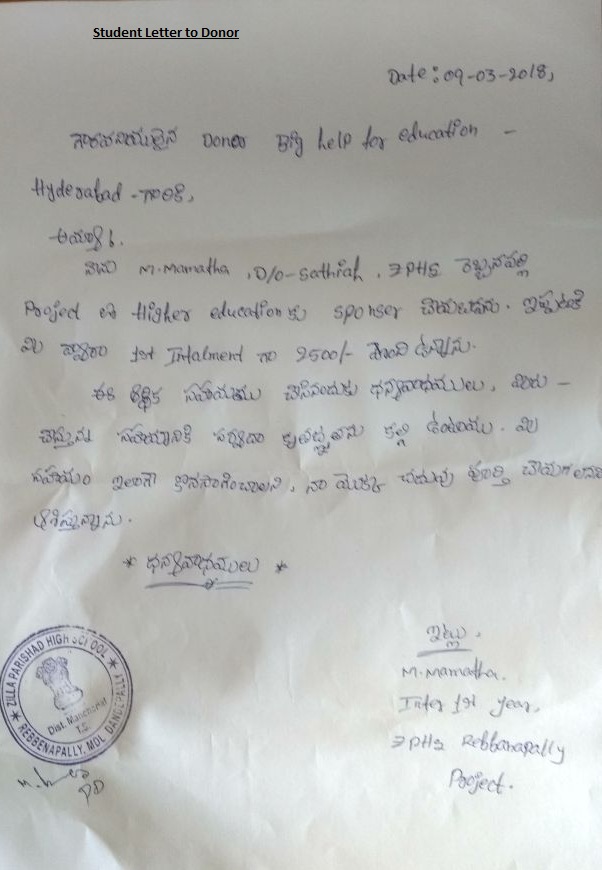 Student Letter to Donor
Date: 09-03-2018,
గౌరవనీయులైన Donor Big help for education -
Hyderabad - గారికి,
ఆయ్యా!
నేను M.Mamatha, D/o - Sathiah, ZPHS రెబ్బనపల్లి
Project లో Higher education కు sponser చేయబడ్డాను. ఇప్పటికి
మీ ద్వారా 1st Intalment గా 2500/- పొంది ఉన్నాను.
ఈ ఆర్థిక సహాయము చేసినందుకు ధన్యవాధములు, మీరు -
చేస్తున్న సహాయానికి సర్వదా కృతజ్ఞతను కల్గి ఉంటాము. మీ
సహాయం ఇలాగే కొనసాగించాలని, నా యొక్క చదువు పూర్తి చేయగలనని
ఆశిస్తున్నాను.
* ధన్యవాధములు *
ఇట్లు,
M.Mamatha.
Inter 1st year,
ZPHS Rebbanapally
Project.
ZILLA PARISHAD HIGH SCHOOL
REBBENAPALLY, MDL DANDEPALLY
Dist. Mancherial
T.S.
PD